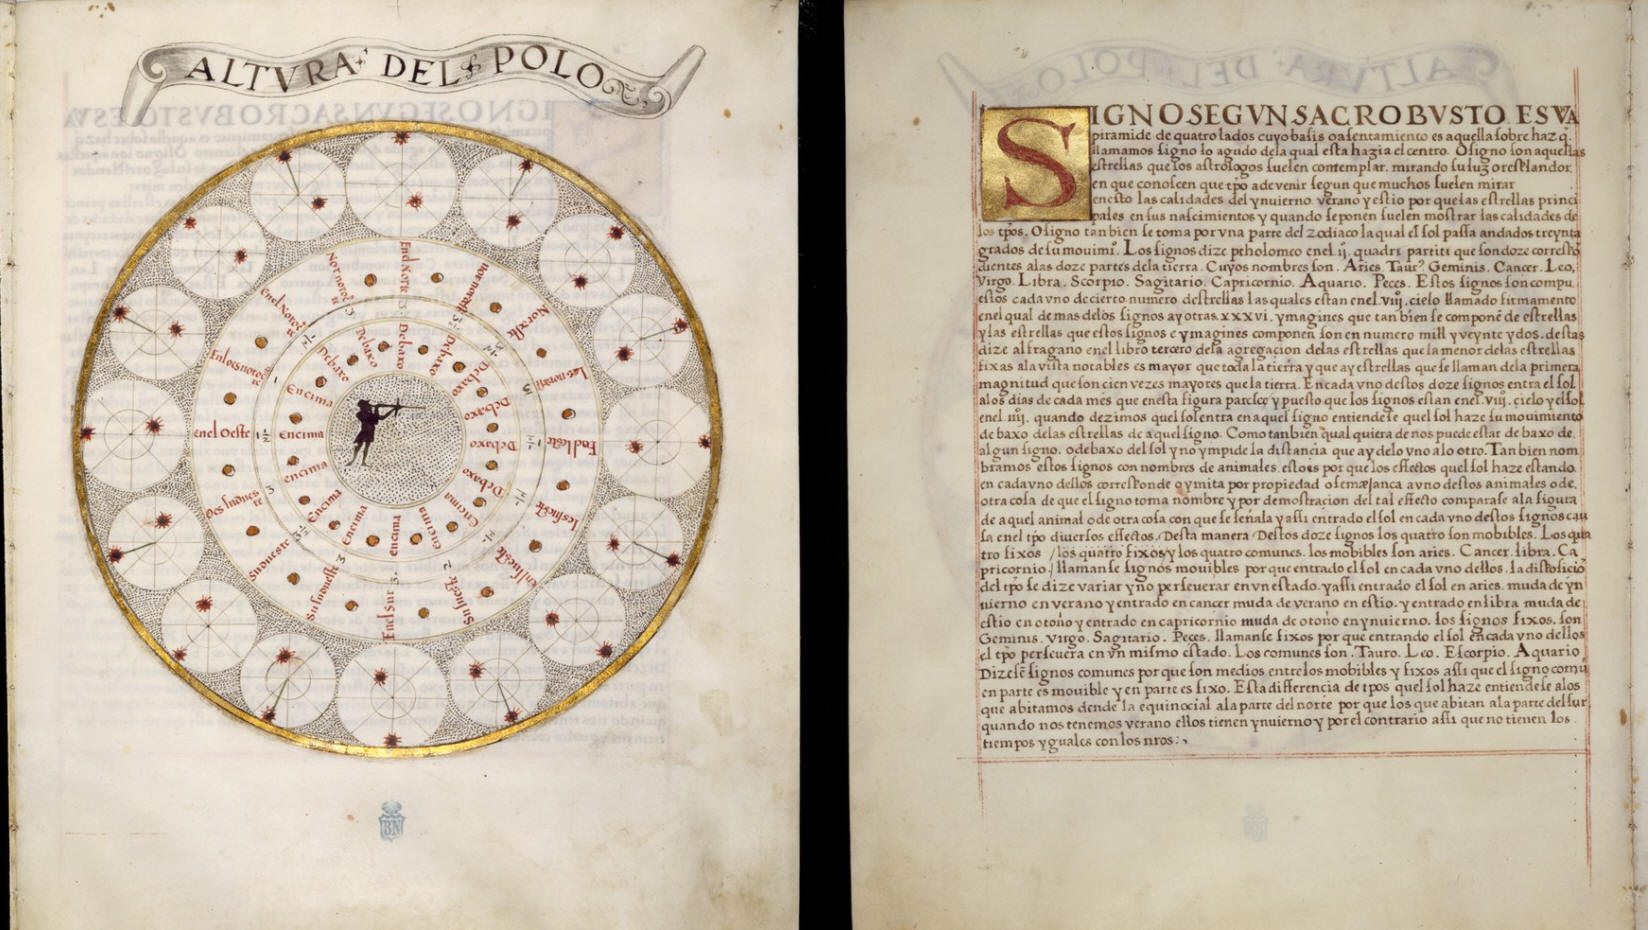 ALTVRA DEL POLO
Enel Norte
nornorest
Norueste
Lesnorest
Enel leste
Lessueste
enel sueste
Susueste
Enel Sur
Susudueste
Sudueste
Oessudueste
enel Oeste
Debaxo
Debaxo
Debaxo
Debaxo
Debaxo
Debaxo
Debaxo
Debaxo
Encima
Encima
Encima
Encima
Encima
Encima
Encima
Encima
BN
SIGNO SEGVN SACROBVSTO ES VA
piramide de quatro lados cuyo basis o asentamiento es aquella sobre haz q̄
llamamos signo lo agudo dela qual esta hazia el centro. O signo son aquellas
estrellas que los astrologos suelen contemplar. mirando su luz o resplandor
en que conoscen que tp̄o a de venir segun que muchos suelen mirar
en esto las calidades del ynuierno. verano y estio por que las estrellas princi
pales en sus nascimientos y quando se ponen suelen mostrar las calidades de
los tp̄os. O signo tan bien se toma por vna parte del zodiaco la qual el sol passa andados treynta
grados de su mouimi°. Los signos dize ptholomeo enel .ij. quadri partiti que son doze correspō
dientes alas doze partes dela tierra. Cuyos nombres son. Aries. Taur°. Geminis. Cancer. Leo,
Virgo. Libra. Scorpio. Sagitario. Capricornio. Aquario. Peces. Estos signos son compu
estos cada vno de cierto numero destrellas las quales estan enel .viij. cielo llamado firmamento
enel qual de mas delos signos ay otras xxxvi. ymagines que tan bien se componē de estrellas
y las estrellas que estos signos e ymagines componen son en numero mill y veynte y dos. destas
dize alfragano enel libro tercero desa agregacion delas estrellas que la menor delas estrellas
fixas ala vista notables es mayor que toda la tierra y que ay estrellas que se llaman dela primera
magnitud que son cien vezes mayores que la tierra. En cada vno destos doze signos entra el sol
alos dias de cada mes que en esta figura paresce y puesto que los signos estan enel. viij. cielo y el sol
enel .iiij. quando dezimos quel sol entra en aquel signo entiendese quel sol haze su mouimiento
de baxo delas estrellas de aquel signo. Como tan bien qual quiera de nos puede estar de baxo de
algun signo. o debaxo del sol y no ympide la distancia que ay delo vno alo otro. Tan bien nom
bramos estos signos con nombres de animales. esto es por que los effectos quel sol haze estando
en cada vno dellos corresponde o ymita por propiedad o semejança a vno destos animales o de
otra cosa de que el signo toma nombre y por demostracion del tal effecto comparase ala figura
de aquel animal o de otra cosa con que se señala y assi entrado el sol en cada vno destos signos cau
sa enel tp̄o diuersos effectos. Desta manera Destos doze signos los quatro son mobibles. Los qua
tro fixos / los quatro fixos y los quatro comunes. los mobibles son aries. Cancer. libra. Ca
pricornio / llamanse signos mouibles por que entrado el sol en cada vno dellos. la disposicio
del tp̄o se dize variar y no perseuerar en vn estado. y assi entrado el sol en aries. muda de yn
uierno en verano y entrado en cancer muda de verano en estio. y entrado en libra muda de
estio en otoño y entrado en capricornio muda de otoño en ynuierno. los signos fixos. son
Geminis. Virgo. Sagitario. Peces. llamanse fixos por que entrando el sol en cada vno dellos
el tp̄o perseuera en vn mismo estado. Los comunes son. Tauro. Leo. Escorpio. Aquario
Dizese signos comunes por que son medios entrelos mobibles y fixos assi que el signo comū
en parte es mouible y en parte es fixo. Esta differencia de tp̄os quel sol haze entiendese alos
que abitamos dende la equinocial ala parte del norte por que los que abitan ala parte del sur
quando nos tenemos verano ellos tienen ynuierno y por el contrario assi que no tienen los
tiempos yguales con los nros: